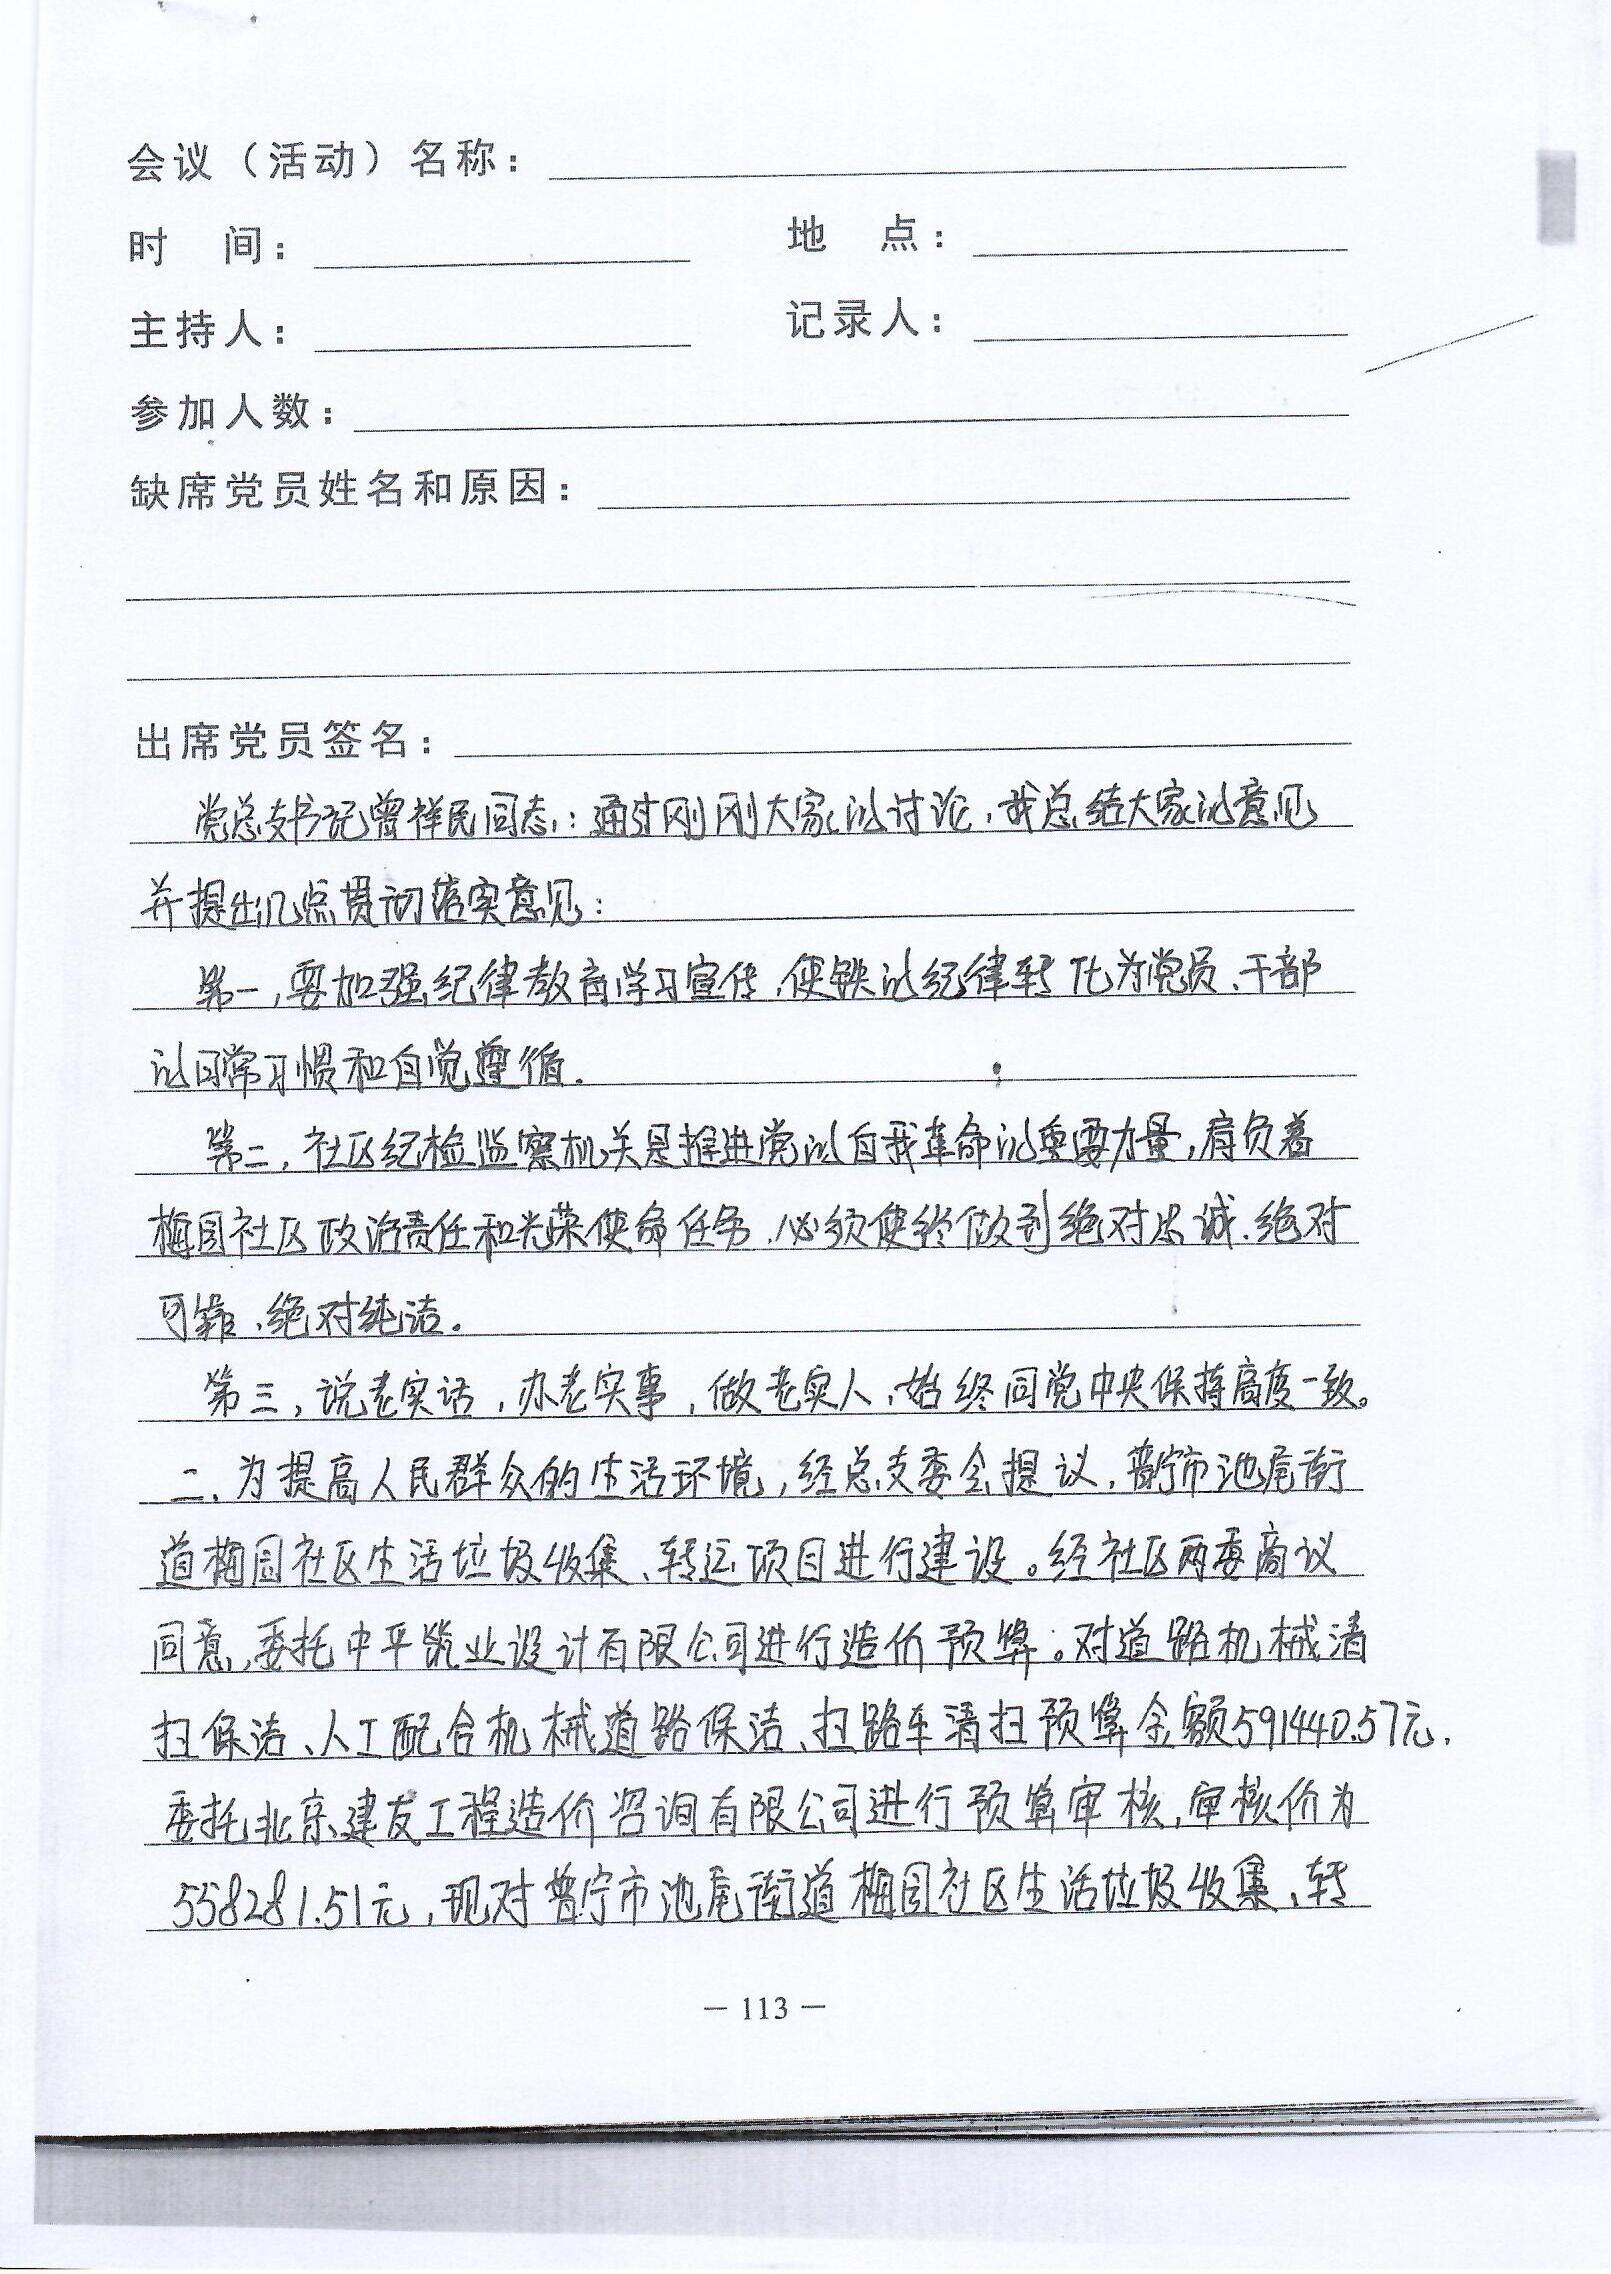 会议（活动）名称：
时　间：　地　点：
主持人：　记录人：
参加人数：
缺席党员姓名和原因：
出席党员签名：
党总支书记曾祥民同志：通过刚刚大家的讨论，我总结大家的意见
并提出几点贯彻落实意见：
第一，要加强纪律教育学习宣传，使铁的纪律转化为党员、干部
的日常习惯和自觉遵循.
第二，社区纪检监察机关是推进党的自我革命的重要力量，肩负着
梅园社区政治责任和光荣使命任务，必须使终做到绝对忠诚、绝对
可靠、绝对纯洁。
第三，说老实话，办老实事，做老实人，始终同党中央保持高度一致。
二、为提高人民群众的生活环境，经总支委会提议，普宁市池尾街
道梅园社区生活垃圾收集、转运项目进行建设。经社区两委商议
同意，委托中平筑业设计有限公司进行造价预算。对道路机械清
扫保洁、人工配合机械道路保洁、扫路车清扫预算金额591440.57元，
委托北京建友工程造价咨询有限公司进行预算审核，审核价为
558281.51元，现对普宁市池尾街道梅园社区生活垃圾收集、转
— 113 —